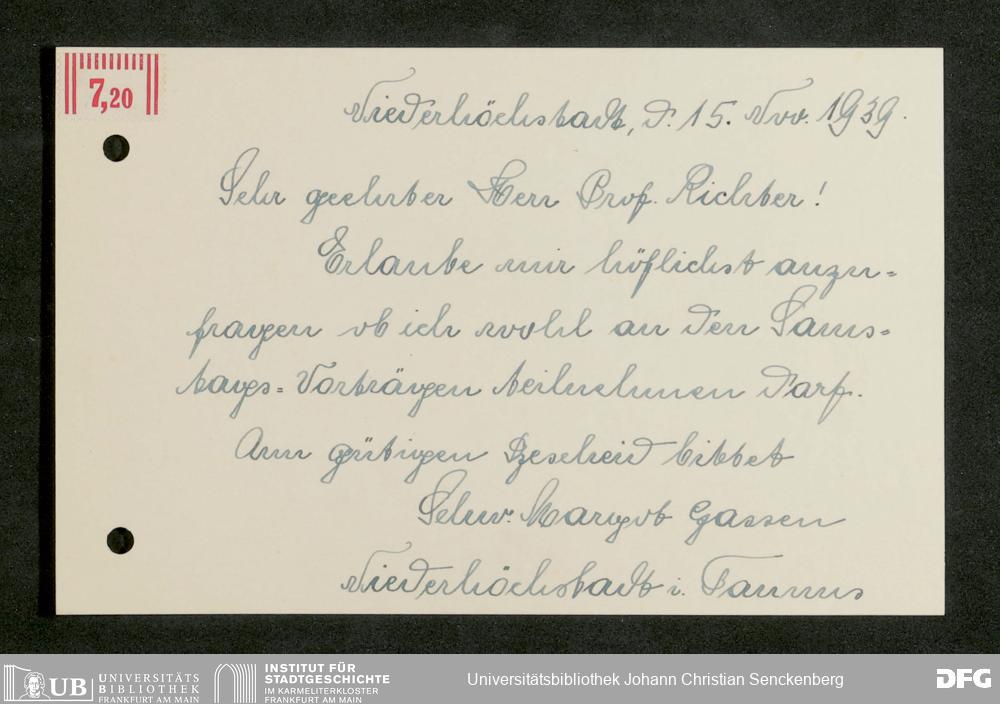 7,20
Niederhöchstadt, d. 15. Nov. 1939.
Sehr geehrter Herr Prof. Richter!
Erlaube mir höflichst anzu=
fragen ob ich wohl an den Sams=
tags=Vorträgen teilnehmen darf.
Um gütigen Bescheid bittet
Schw. Margot Gassen
Niederhöchstadt i. Taunus
UB UNIVERSITÄTS
BIBLIOTHEK
FRANKFURT AM MAIN
INSTITUT FÜR
STADTGESCHICHTE
IM KARMELITERKLOSTER
FRANKFURT AM MAIN
Universitätsbibliothek Johann Christian Senckenberg
DFG